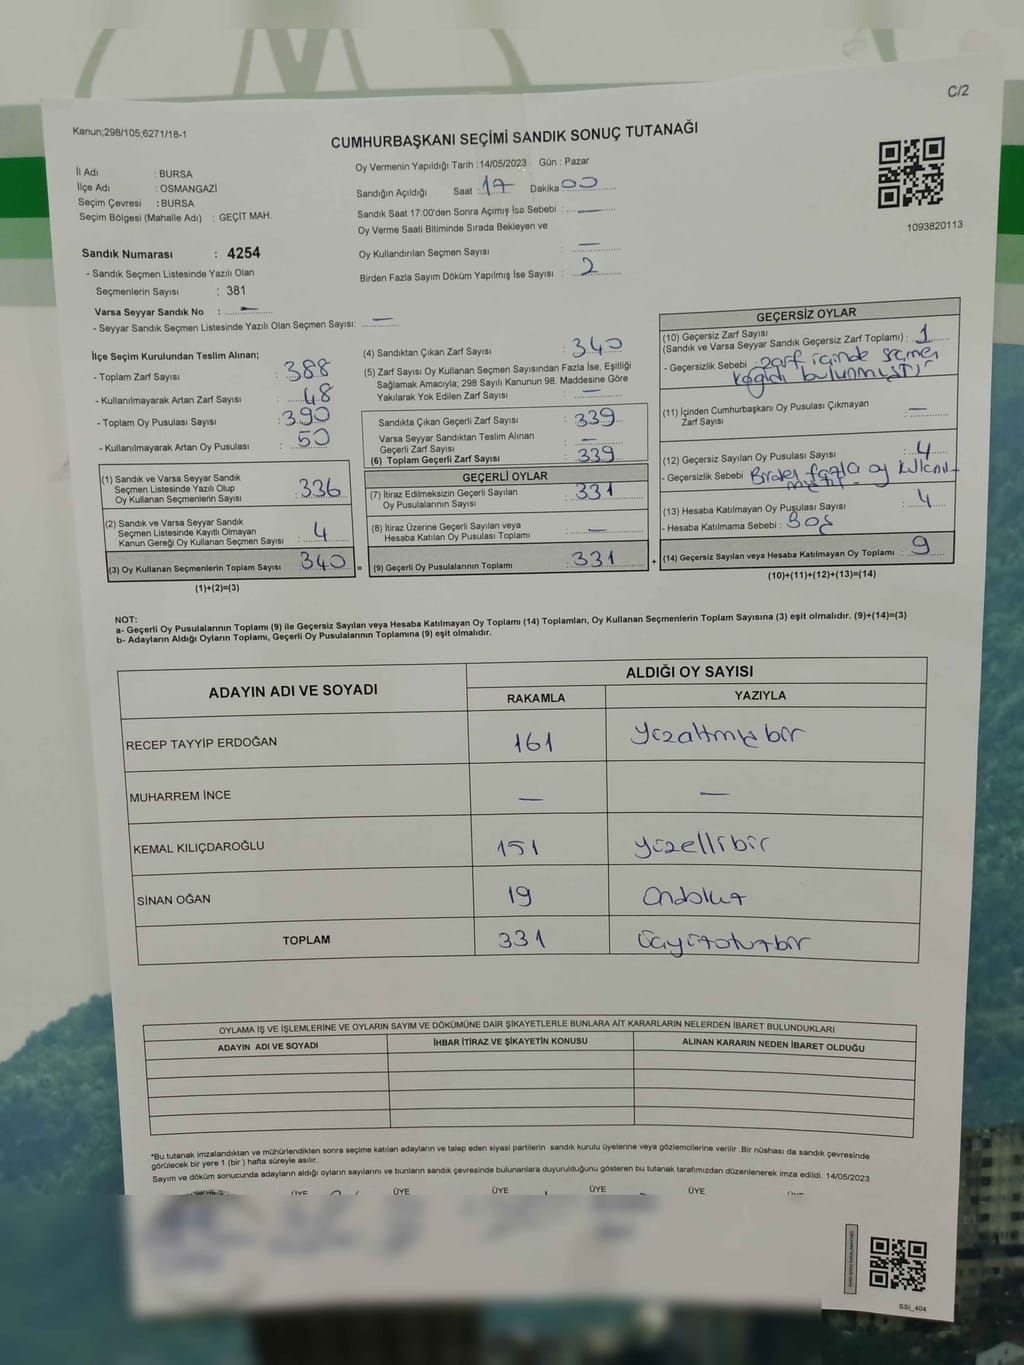 C/2
Kanun;298/105;6271/18-1
CUMHURBAŞKANI SEÇİMİ SANDIK SONUÇ TUTANAĞI
İl Adı : BURSA
İlçe Adı : OSMANGAZİ
Seçim Çevresi : BURSA
Seçim Bölgesi (Mahalle Adı) : GEÇİT MAH.
Oy Vermenin Yapıldığı Tarih : 14/05/2023 Gün : Pazar
Sandığın Açıldığı Saat : 17 Dakika 00
Sandık Saat 17:00'den Sonra Açımış İse Sebebi : —
Oy Verme Saati Bitiminde Sırada Bekleyen ve
Oy Kullandırılan Seçmen Sayısı : —
Birden Fazla Sayım Döküm Yapılmış İse Sayısı : 2
1093820113
Sandık Numarası : 4254
- Sandık Seçmen Listesinde Yazılı Olan
Seçmenlerin Sayısı : 381
Varsa Seyyar Sandık No : —
- Seyyar Sandık Seçmen Listesinde Yazılı Olan Seçmen Sayısı: —
İlçe Seçim Kurulundan Teslim Alınan;
- Toplam Zarf Sayısı : 388
- Kullanılmayarak Artan Zarf Sayısı : 48
- Toplam Oy Pusulası Sayısı : 390
- Kullanılmayarak Artan Oy Pusulası : 50
(1) Sandık ve Varsa Seyyar Sandık
Seçmen Listesinde Yazılı Olup
Oy Kullanan Seçmenlerin Sayısı : 336
(2) Sandık ve Varsa Seyyar Sandık
Seçmen Listesinde Kayıtlı Olmayan
Kanun Gereği Oy Kullanan Seçmen Sayısı : 4
(3) Oy Kullanan Seçmenlerin Toplam Sayısı : 340 =
(1)+(2)=(3)
(4) Sandıktan Çıkan Zarf Sayısı : 340
(5) Zarf Sayısı Oy Kullanan Seçmen Sayısından Fazla İse, Eşitliği
Sağlamak Amacıyla; 298 Sayılı Kanunun 98. Maddesine Göre
Yakılarak Yok Edilen Zarf Sayısı : —
Sandıkta Çıkan Geçerli Zarf Sayısı : 339
Varsa Seyyar Sandıktan Teslim Alınan
Geçerli Zarf Sayısı : —
(6) Toplam Geçerli Zarf Sayısı : 339
GEÇERLİ OYLAR
(7) İtiraz Edilmeksizin Geçerli Sayılan
Oy Pusulasının Sayısı : 331
(8) İtiraz Üzerine Geçerli Sayılan veya
Hesaba Katılan Oy Pusulası Toplamı : —
(9) Geçerli Oy Pusulalarının Toplamı : 331 +
GEÇERSİZ OYLAR
(10) Geçersiz Zarf Sayısı
(Sandık ve Varsa Seyyar Sandık Geçersiz Zarf Toplamı) : 1
- Geçersizlik Sebebi : zarf içinde seçmen
kağıdı bulunmuştur
(11) İçinden Cumhurbaşkanı Oy Pusulası Çıkmayan
Zarf Sayısı : —
(12) Geçersiz Sayılan Oy Pusulası Sayısı : 4
- Geçersizlik Sebebi Birden fazla oy kullanıl-
mıştır
(13) Hesaba Katılmayan Oy Pusulası Sayısı : 4
- Hesaba Katılmama Sebebi : Boş
(14) Geçersiz Sayılan veya Hesaba Katılmayan Oy Toplamı : 9
(10)+(11)+(12)+(13)=(14)
NOT:
a- Geçerli Oy Pusulalarının Toplamı (9) ile Geçersiz Sayılan veya Hesaba Katılmayan Oy Toplamı (14) Toplamları, Oy Kullanan Seçmenlerin Toplam Sayısına (3) eşit olmalıdır. (9)+(14)=(3)
b- Adayların Aldığı Oyların Toplamı, Geçerli Oy Pusulalarının Toplamına (9) eşit olmalıdır.
ADAYIN ADI VE SOYADI
ALDIĞI OY SAYISI
RAKAMLA YAZIYLA
RECEP TAYYİP ERDOĞAN 161 yüzaltmışbir
MUHARREM İNCE — —
KEMAL KILIÇDAROĞLU 151 yüzellibir
SİNAN OĞAN 19 ondokuz
TOPLAM 331 üçyüzotuzbir
OYLAMA İŞ VE İŞLEMLERİNE VE OYLARIN SAYIM VE DÖKÜMÜNE DAİR ŞİKAYETLERLE BUNLARA AİT KARARLARIN NELERDEN İBARET BULUNDUKLARI
ADAYIN ADI VE SOYADI İHBAR İTİRAZ VE ŞİKAYETİN KONUSU ALINAN KARARIN NEDEN İBARET OLDUĞU
*Bu tutanak imzalandıktan ve mühürlendikten sonra seçime katılan adayların ve talep eden siyasi partilerin sandık kurulu üyelerine veya gözlemcilerine verilir .Bir nüshası da sandık çevresinde
görülecek bir yere 1 (bir ) hafta süreyle asılır.
Sayım ve döküm sonucunda adayların aldığı oyların sayılarını ve bunların sandık çevresinde bulunanlara duyurulduğunu gösteren bu tutanak tarafımızdan düzenlenerek imza edildi. 14/05/2023
ÜYE ÜYE ÜYE ÜYE ÜYE
GSI_404